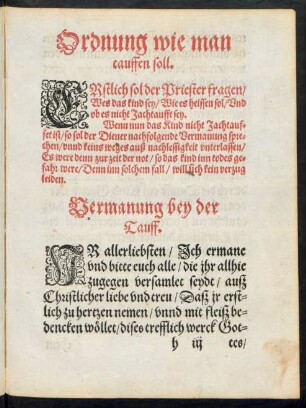 Ordnung wie man
tauffen soll.
ERstlich sol der Priester fragen/
Wes das kind sey/ Wie es heissen sol/ Vnd
ob es nicht Jachtaufft sey.
Wenn nun das Kind nicht Jachtauf-
fet ist/ so sol der Diener nachfolgende Vermanung spre-
chen/ vnnd keins weges auß nachlessigkeit vnterlassen/
Es were denn zur zeit der not/ so das kind inn todes ge-
fahr were/ Denn inn solchem fall/ will sich kein verzug
leiden.
Vermanung bey der
Tauff.
IR allerliebsten/ Ich ermane
vnd bitte euch alle/ die jhr allhie
zugegen versamlet seydt/ auß
Christlicher liebe vnd treu/ Daß jr erst-
lich zu hertzen nemen/ vnnd mit fleiß be-
dencken wöllet/ dises trefflich werck Got-
h iij tes/